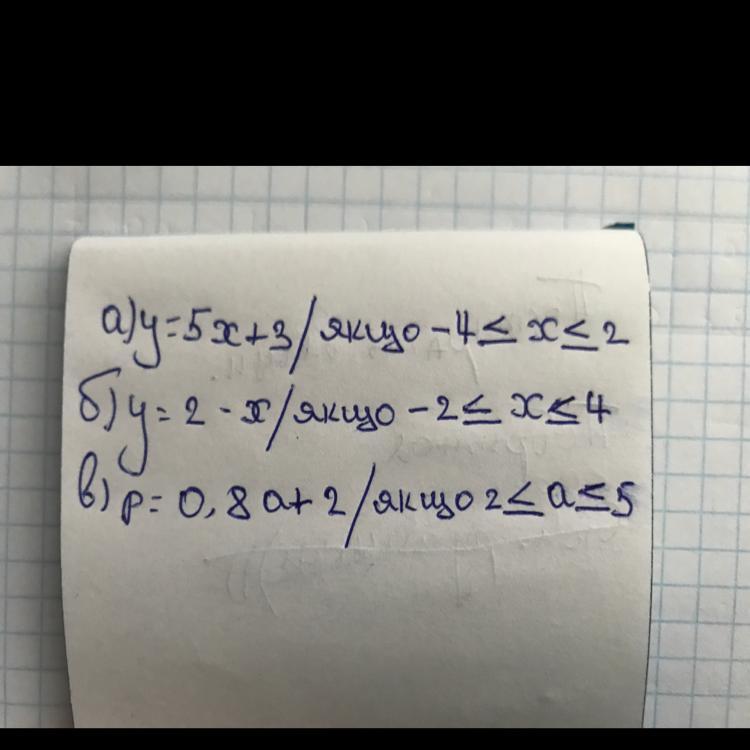 а) y=5x+3/якщо -4≤ x≤2
б) y=2-x/якщо-2≤ x≤4
в) p=0,8a+2/якщо 2≤a≤5